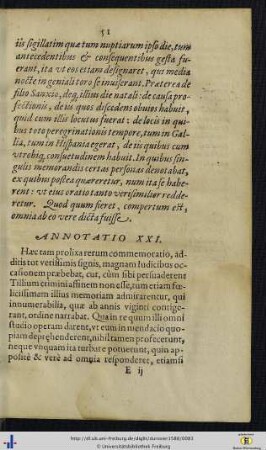 51
iis sigillatim quæ tum nuptiarum ipso die, tum
antecedentibus & consequentibus gesta fue-
rant, ita vt eos etiam designaret, qui media
nocte in geniali toro se inuiserant. Præterea de
filio Sanxio, deq; illius die natali: de causa pro-
fectionis, de iis quos discedens obuios habuit,
quid cum illis locutus fuerat: de locis in qui-
bus toto peregrinationis tempore, tum in Gal-
lia, tum in Hispania egerat, de iis quibus cum
vtrobiq; consuetudinem habuit. In quibus sin-
gulis memorandis certas personas denotabat,
ex quibus postea quæreretur, num ita se habe-
rent: vt eius oratio tanto verisimilior redde-
retur. Quod quum fieret, compertum est,
omnia ab eo vere dicta fuisse.
ANNOTATIO XXI.
Hæc tam prolixa rerum commemoratio, ad-
ditis tot verissimis signis, magnam Iudicibus oc-
casionem præbebat, cur, cùm sibi persuaderent
Tillium criminis affinem non esse, tum etiam fœ-
licissimam illius memoriam admirarentur, qui
innumerabilia, quæ ab annis viginti contige-
rant, ordine narrabat. Quin re quum illi omni
studio operam darent, vt eum in mendacio quo-
piam deprehenderent, nihil tamen profecerunt,
neque vnquam ita turbare potuerunt, quin ap-
positè & verè ad omnia responderet, etiamsi
E ij
http://dl.ub.uni-freiburg.de/diglit/
© Universitätsbibliothek Freiburg